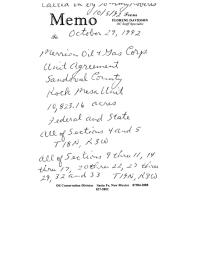 Called in by
10/5/92
From
Memo
FLORENE DAVIDSON
OC Staff Specialist
To
October 29, 1992
Merrion Oil & Gas Corp.
Unit Agreement
Sandoval County
Rock Mesa Unit
10,823.16 acres
Federal and State
all of Sections 4 and 5
T18N, R3W
all of Sections 9 thru 11, 14
thru 17, 20 thru 22, 27 thru
29, 32 and 33 T19N, R3W
Oil Conservation Division Santa Fe, New Mexico 87504-2088
827-5802